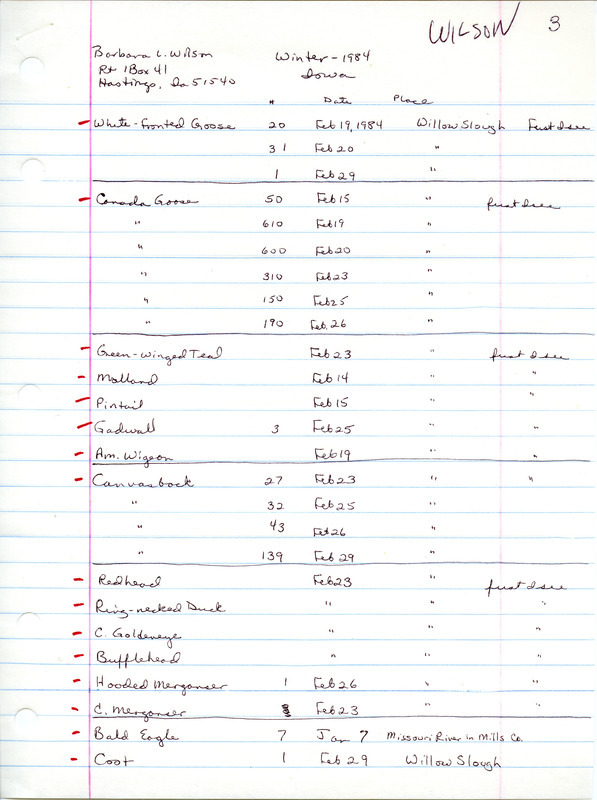 WILSON 3
Barbara L. Wilson Winter - 1984
Rt 1 Box 41 Iowa
Hastings, Ia 51540
# Date Place
- White-fronted Goose 20 Feb 19, 1984 Willow Slough First I see
31 Feb 20 "
1 Feb 29 "
- Canada Goose 50 Feb 15 " first I see
" 610 Feb 19 "
" 600 Feb 20 "
" 310 Feb 23 "
" 150 Feb 25 "
" 190 Feb. 26 "
- Green-winged Teal Feb 23 " first I see
- Mallard Feb 14 " "
- Pintail Feb 15 " "
- Gadwall 3 Feb 25 " "
- Am. Wigeon Feb 19 " "
- Canvasback 27 Feb 23 " "
" 32 Feb 25 "
" 43 Feb 26 "
" 139 Feb 29 "
- Redhead Feb 23 " first I see
- Ring-necked Duck " " "
- C. Goldeneye " " "
- Bufflehead " " "
- Hooded Merganser 1 Feb 26 " "
- C. Merganser Feb 23 " "
- Bald Eagle 7 Jan 7 Missouri River in Mills Co.
- Coot 1 Feb 29 Willow Slough